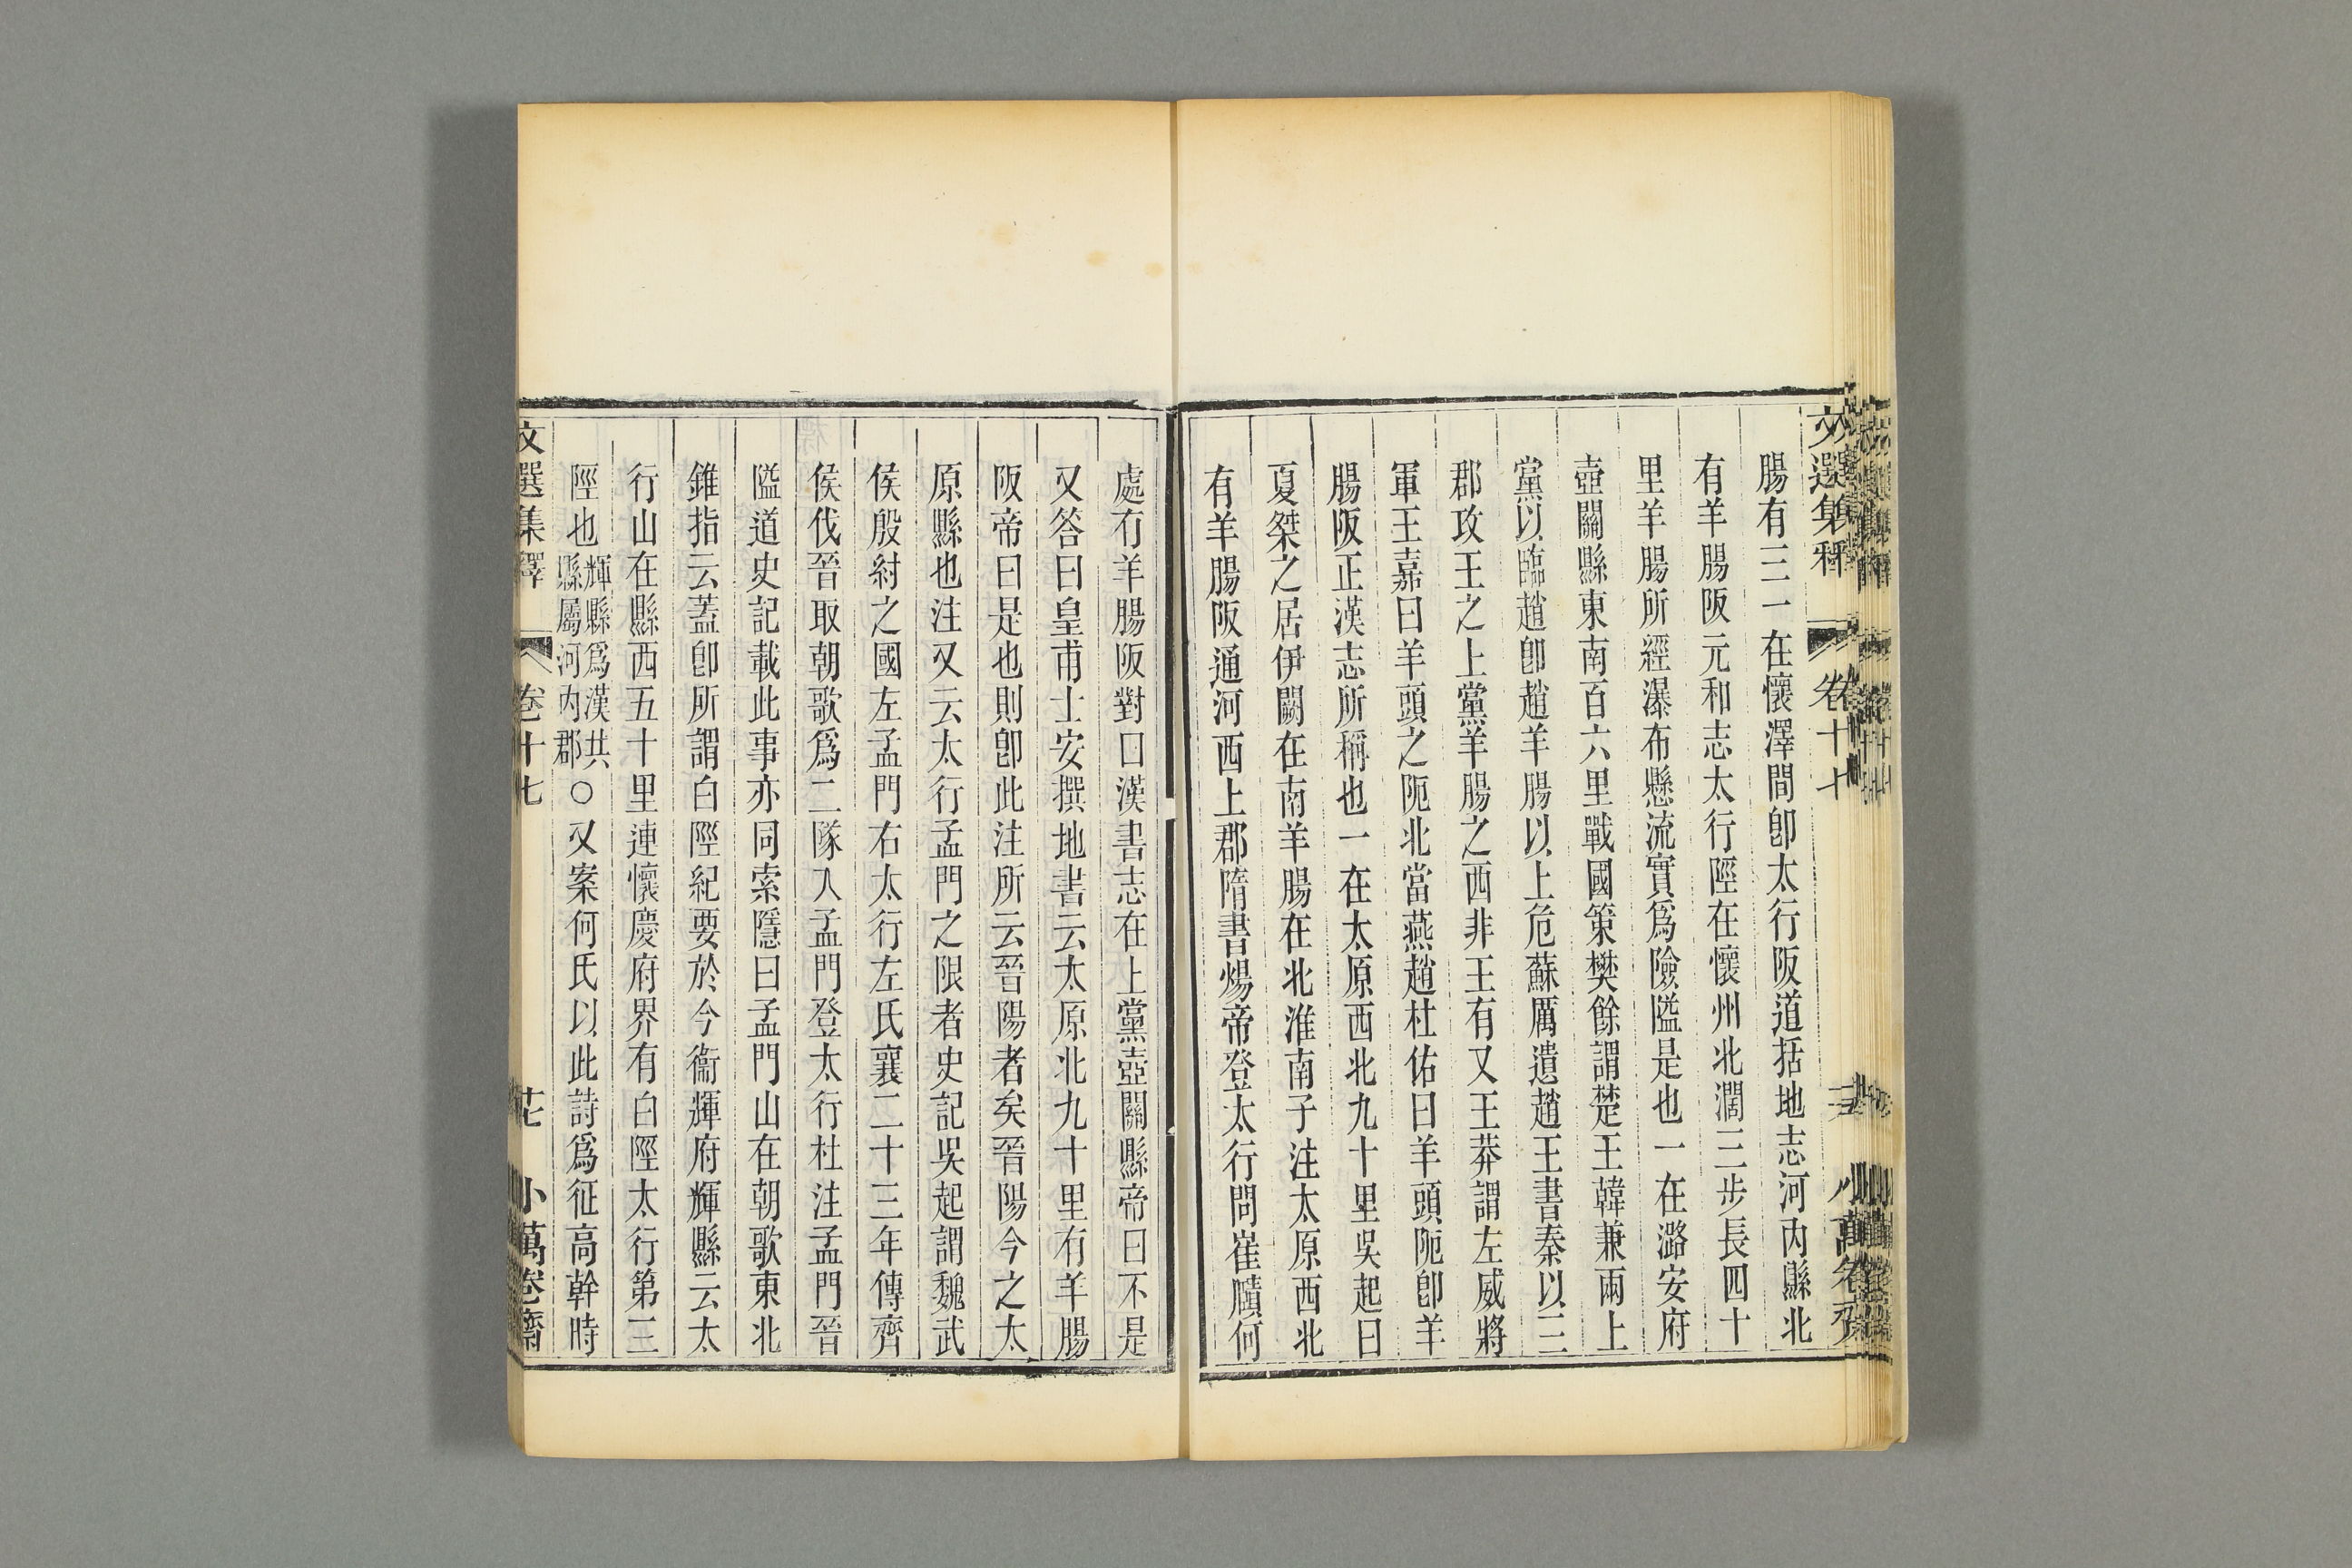 文選集釋 卷十七
腸有三一在懷澤間卽太行阪道括地志河內縣北
有羊腸阪元和志太行陘在懷州北濶三步長四十
里羊腸所經瀑布懸流實爲險隘是也一在潞安府
壺關縣東南百六里戰國策樊餘謂楚王韓兼兩上
黨以臨趙卽趙羊腸以上危蘇厲遺趙王書秦以三
郡攻王之上黨羊腸之西非王有又王莽謂左威將
軍王嘉曰羊頭之阨北當燕趙杜佑曰羊頭阨卽羊
腸阪正漢志所稱也一在太原西北九十里吳起曰
夏桀之居伊闕在南羊腸在北淮南子注太原西北
有羊腸阪通河西上郡隋書煬帝登太行問崔賾何
處有羊腸阪對曰漢書志在上黨壺關縣帝曰不是
又答曰皇甫士安撰地書云太原北九十里有羊腸
阪帝曰是也則卽此注所云晉陽者矣晉陽今之太
原縣也注又云太行孟門之限者史記吳起謂魏武
侯殷紂之國左孟門右太行左氏襄二十三年傳齊
侯伐晉取朝歌爲二隊入孟門登太行杜注孟門晉
隘道史記載此事亦同索隱曰孟門山在朝歌東北
錐指云蓋卽所謂白陘紀要於今衞輝府輝縣云太
行山在縣西五十里連懷慶府界有白陘太行第三
陘也輝縣爲漢共縣屬河內郡○又案何氏以此詩爲征高幹時
文選集釋 卷十七 小萬卷齋